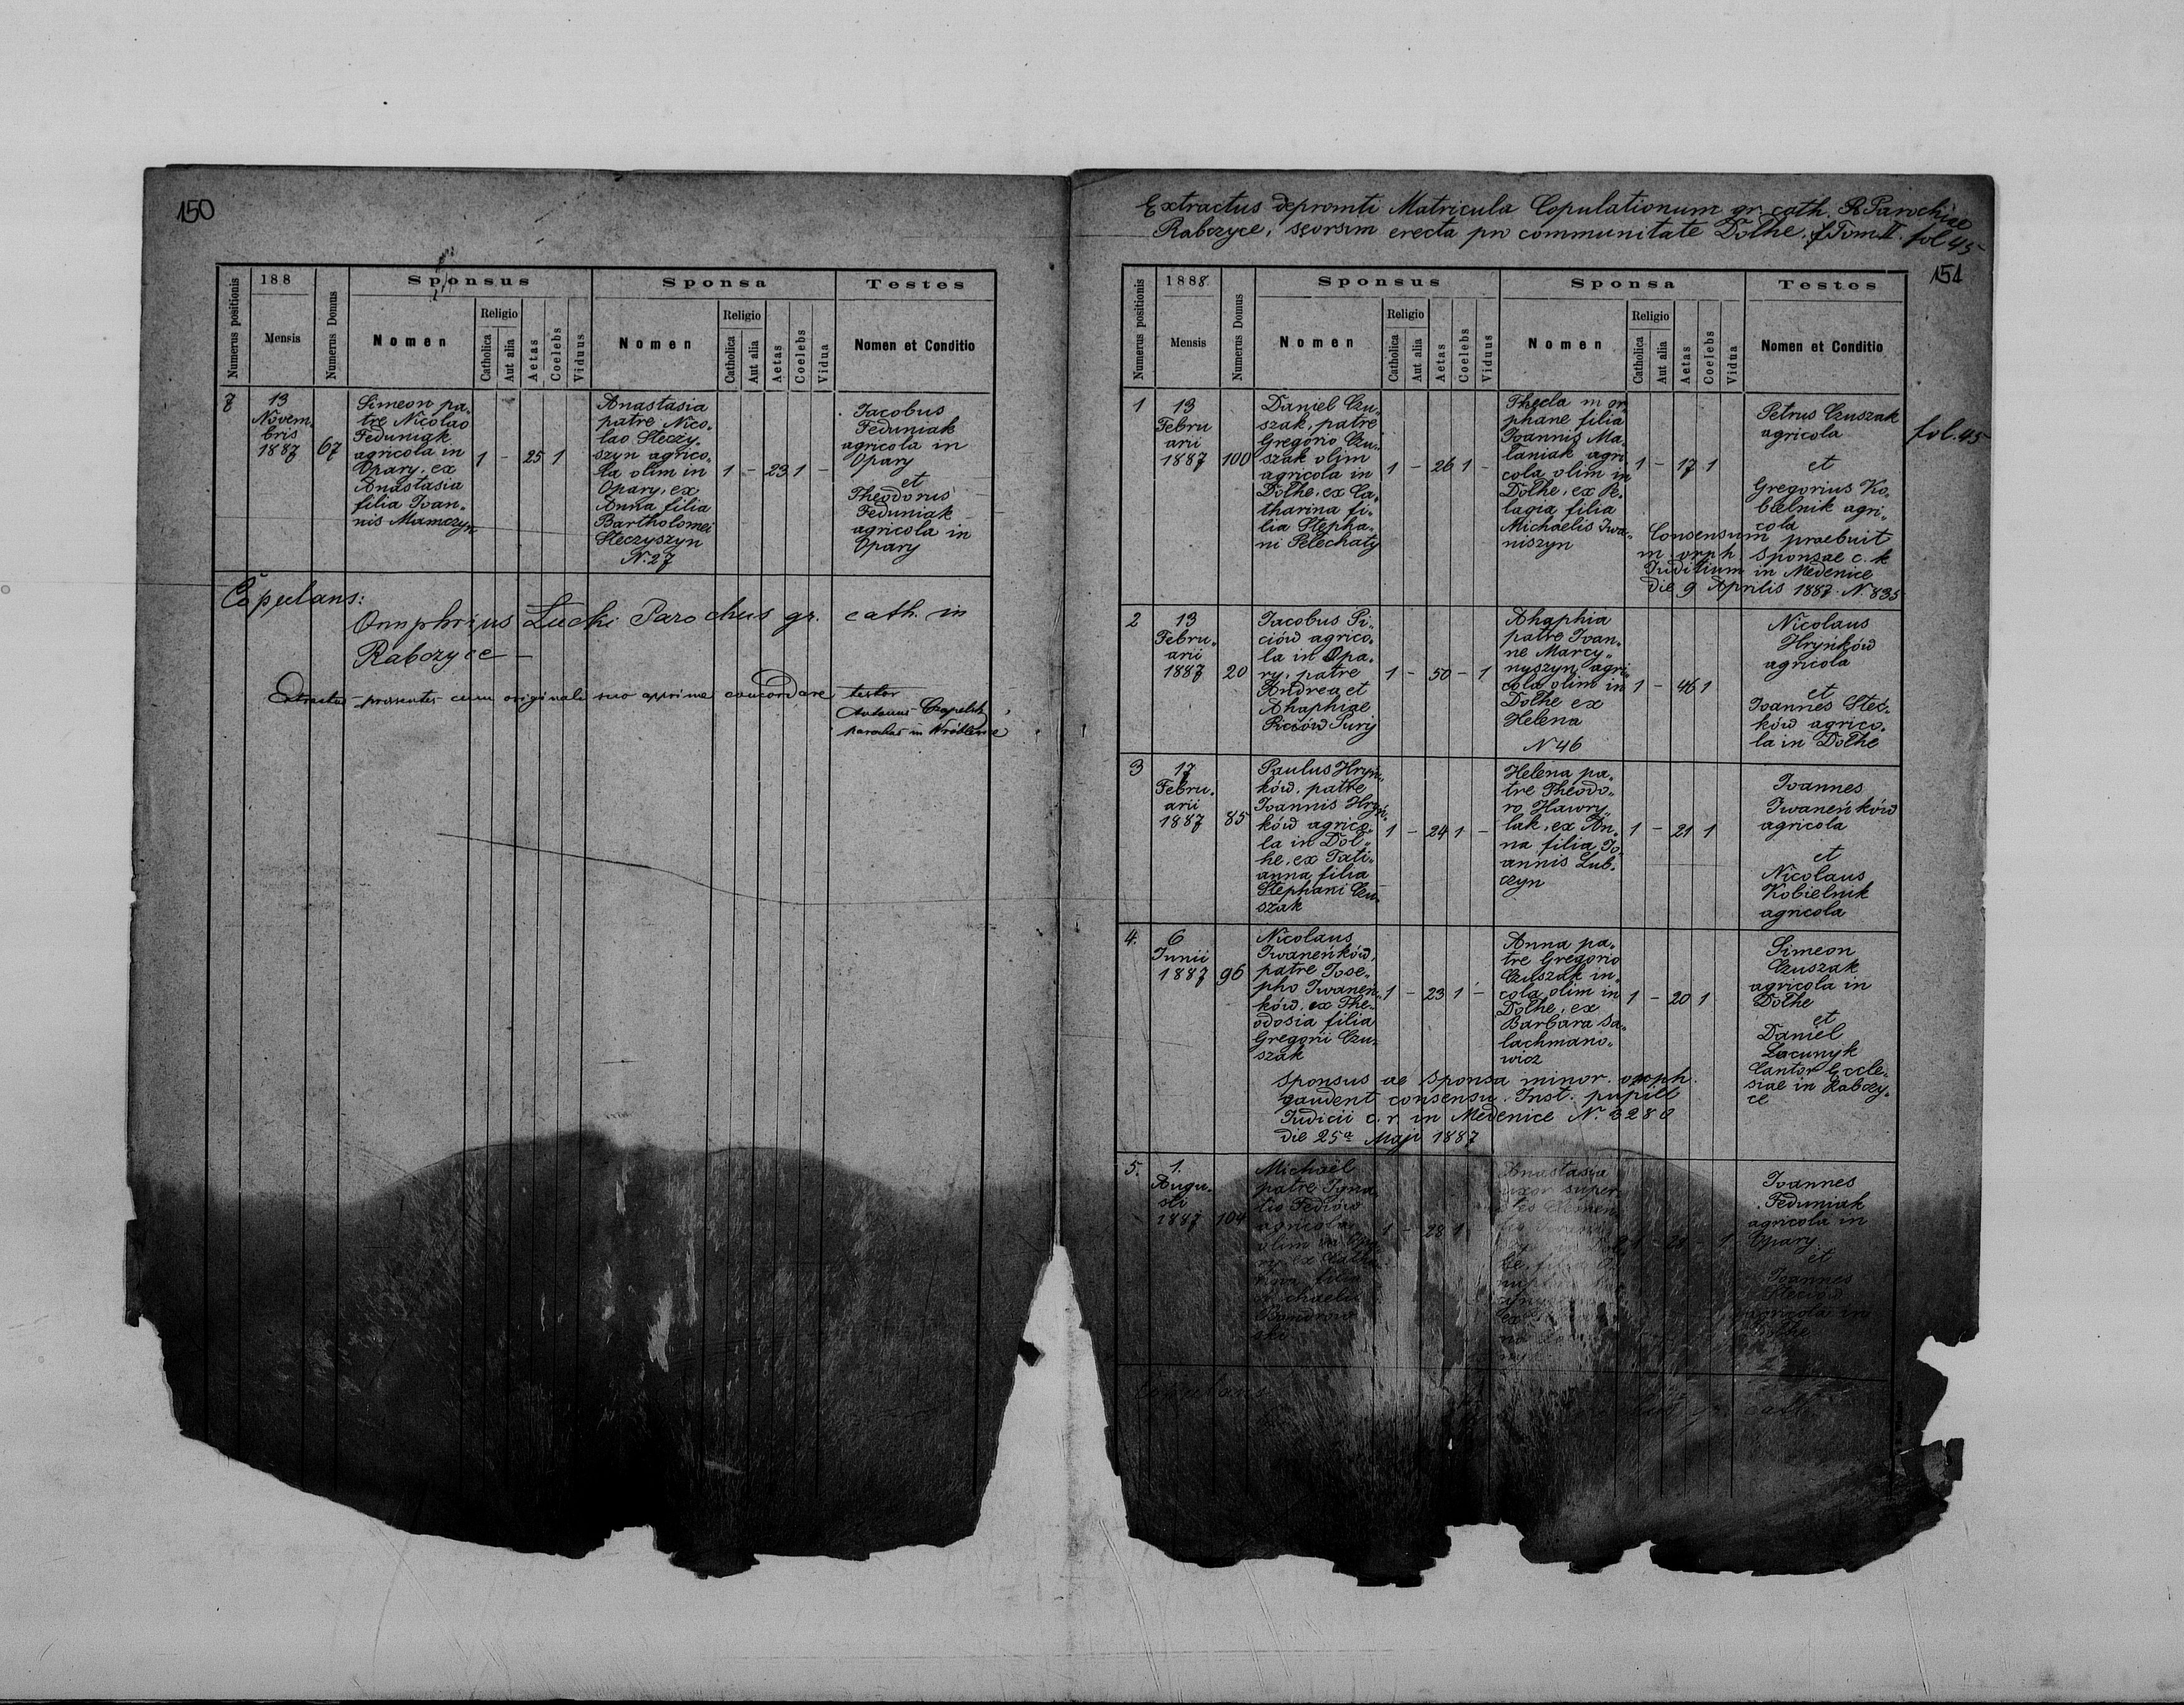 150
188
Mensis
Numerus positionis
Numerus Domus
Sponsus
Nomen
Religio
Catholica
Aut alia
Aetas
Coelebs
Viduus
Sponsa
Nomen
Religio
Catholica
Aut alia
Aetas
Coelebs
Vidua
Testes
Nomen et Conditio
7
13
Novem„
bris
1887
67
Simeon pa„
tre Nicolao
Feduniak
agricola in
Opary, ex
Anastasia
filia Ioan„
nis Mamczyn
1 - 25 1
Anastasia
patre Nico„
lao Steczy„
szyn agrico„
la olim in
Opary, ex
Anna filia
Bartholomei
Steczyszyn
N. 27
1 - 23 1 -
Iacobus
Feduniak
agricola in
Opary
et
Theodorus
Feduniak
agricola in
Opary
Copulans:
Onuphrius Lucki Parochus gr. cath. in
Rabczyce
Extractus praesentes cum originali suo apprime concordare testor
parochus in Wróblewice
Extractus depromti Matricula Copulationum gr. cath. Parochiae
Rabczyce, seorsim erecta pro communitate Dolhe. Tom II. fol 45
151
1888
Mensis
Numerus positionis
Numerus Domus
Sponsus
Nomen
Religio
Catholica
Aut alia
Aetas
Coelebs
Viduus
Sponsa
Nomen
Religio
Catholica
Aut alia
Aetas
Coelebs
Vidua
Testes
Nomen et Conditio
1
13
Febru
arii
1887
100
Daniel Czu„
szak, patre
Gregorio Czu„
szak olim
agricola in
Dolhe, ex Ca„
tharina fi„
lia Stepha„
ni Pelechaty
1 - 26 1 -
Thecla m or
phane filia
Ioannis Ma„
laniak agri
cola olim in
Dolhe, ex Pe„
lagia filia
Michaelis Iwa„
niszyn
1 - 17 1
Petrus Czuszak
agricola
et
Gregorius Ko„
bielnik agri„
cola
fol. 45
Consensum praebuit
m. orph. Sponsae c. k
Iuditium in Medenice
die 9 Aprilis 1887. N. 835
2
13
Febru„
arii
1887
20
Iacobus Pi„
ciów agrico„
la in Opa„
ry, patre
Andrea et
Ahaphiae
Piciów Suryj
1 - 50 - 1
Ahaphia
patre Ioan„
ne Marcy„
nyszyn agri
cola olim in
Dolhe ex
Helena
N 46
1 - 46 1
Nicolaus
Hryńków
agricola
et
Ioannes Stec„
ków agrico„
la in Dolhe
3
17
Febru„
arii
1887
85
Paulus Hryń„
ków, patre
Ioannis Hryń„
ków agrico„
la in Dol„
he, ex Tati„
anna filia
Stephani Czu„
szak
1 - 24 1 -
Helena pa„
tre Theodo„
ro Hawry„
lak, ex An„
na filia Io„
annis Lub„
czyn
1 - 21 1
Ioannes
Iwaneńków
agricola
et
Nicolaus
Kobielnik
agricola
4.
6
Iunii
1887
96
Nicolaus
Iwaneńków,
patre Iose„
pho Iwaneń„
ków, ex The„
odosia filia
Gregorii Czu„
szak
1 - 23 1 -
Anna pa„
tre Gregorio
Czuszak in„
cola olim in
Dolhe, ex
Barbara Sa„
lachmano„
wicz
1 - 20 1
Simeon
Czuszak
agricola in
Dolhe
et
Daniel
Lacunyk
Cantor Eccle„
siae in Rabczy„
ce
Sponsus ac Sponsa minor. orph.
gaudent consensu. Inst. pupill
Iudicii c. r. in Medenice N. 2280
die 25a Maji 1887
5.
1.
Augu„
sti
1887
104
Michaël
patre Igna„
tio Fedków
agricola
olim in Opa„
ry, ex Catha„
rina filia
Michaelis
1 - 28 1
Anastasia
uxor super
Ioannes
Feduniak
agricola in
Opary
et
Ioannes
agricola in
Dolhe
Copulans